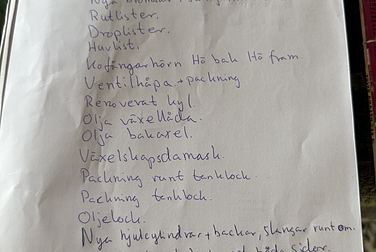 Nya
Rutlister.
Droplister.
Huvlist.
Kofångarhörn Hö bak Hö fram
Ventilkåpa + packning
Renoverat kyl
Olja växellåda.
Olja bakaxel.
Växelspaksdamask.
Packning runt tanklock.
Packning tanklock.
Oljelock.
Nya hjulcylindrar + backar, slangar runt om.
sidor